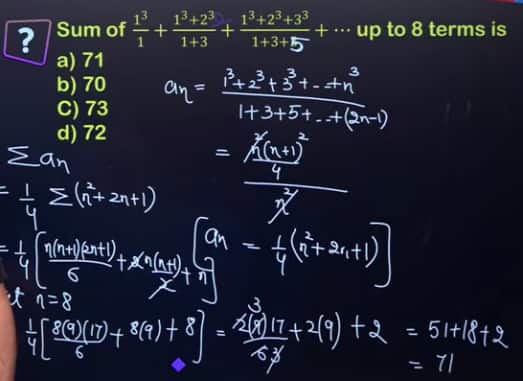 ? Sum of 1³/1 + (1³+2³)/(1+3) + (1³+2³+3³)/(1+3+5) + ⋯ up to 8 terms is
a) 71
b) 70
C) 73
d) 72
aₙ = (1³+2³+3³+--+n³)/(1+3+5+--+(2n-1))
= (n²(n+1)²/4)/n²
[aₙ = 1/4 (n²+2n+1)]
Σaₙ
= 1/4 Σ(n²+2n+1)
= 1/4 [n(n+1)(2n+1)/6 + 2n(n+1)/2 + n]
n=8
1/4 [8(9)(17)/6 + 8(9) + 8] = 2(9)17/6 + 2(9) + 2 = 51+18+2
= 71